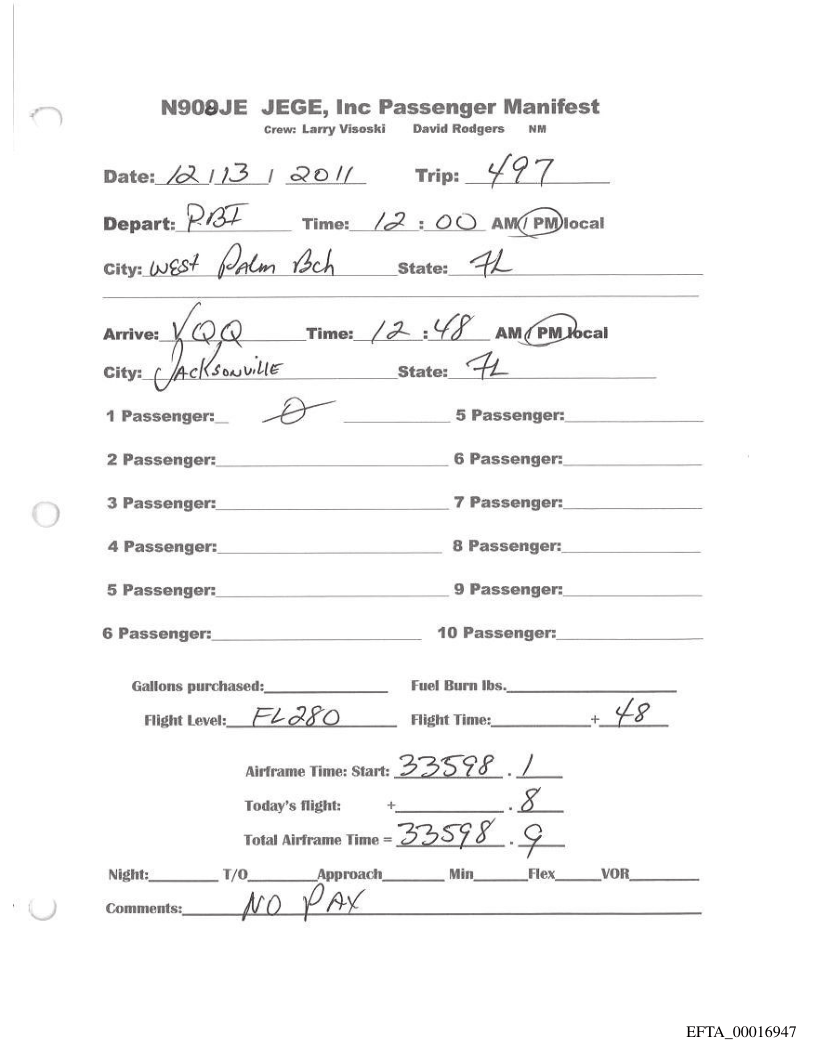 N908JE JEGE, Inc Passenger Manifest
Crew: Larry Visoski David Rodgers NM
Date: 12 / 13 / 2011 Trip: 497
Depart: PBI Time: 12 : 00 AM / PM local
City: WEST PALM Bch State: FL
Arrive: VQQ Time: 12 : 48 AM / PM local
City: JACKSONVILLE State: FL
1 Passenger: 0 5 Passenger:
2 Passenger: 6 Passenger:
3 Passenger: 7 Passenger:
4 Passenger: 8 Passenger:
5 Passenger: 9 Passenger:
6 Passenger: 10 Passenger:
Gallons purchased: Fuel Burn lbs.
Flight Level: FL280 Flight Time: + 48
Airframe Time: Start: 33598 . 1
Today's flight: + . 8
Total Airframe Time = 33598 . 9
Night: T/O Approach Min Flex VOR
Comments: NO PAX
EFTA_00016947